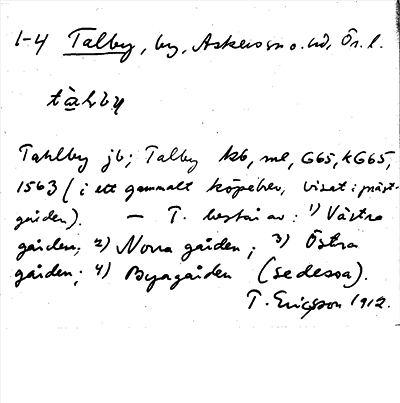 1-4 Talby, by, Askers sn o. hd, Ör. l.
tàlby
Tahlby jb; Talby kb, ml, G65, KG65,
1563 (i ett gammalt köpebrev, visat i präst-
gården). — T. består av: 1) Västra
gården; 2) Norra gården; 3) Östra
gården; 4) Byagården (se dessa).
T. Ericsson 1912.